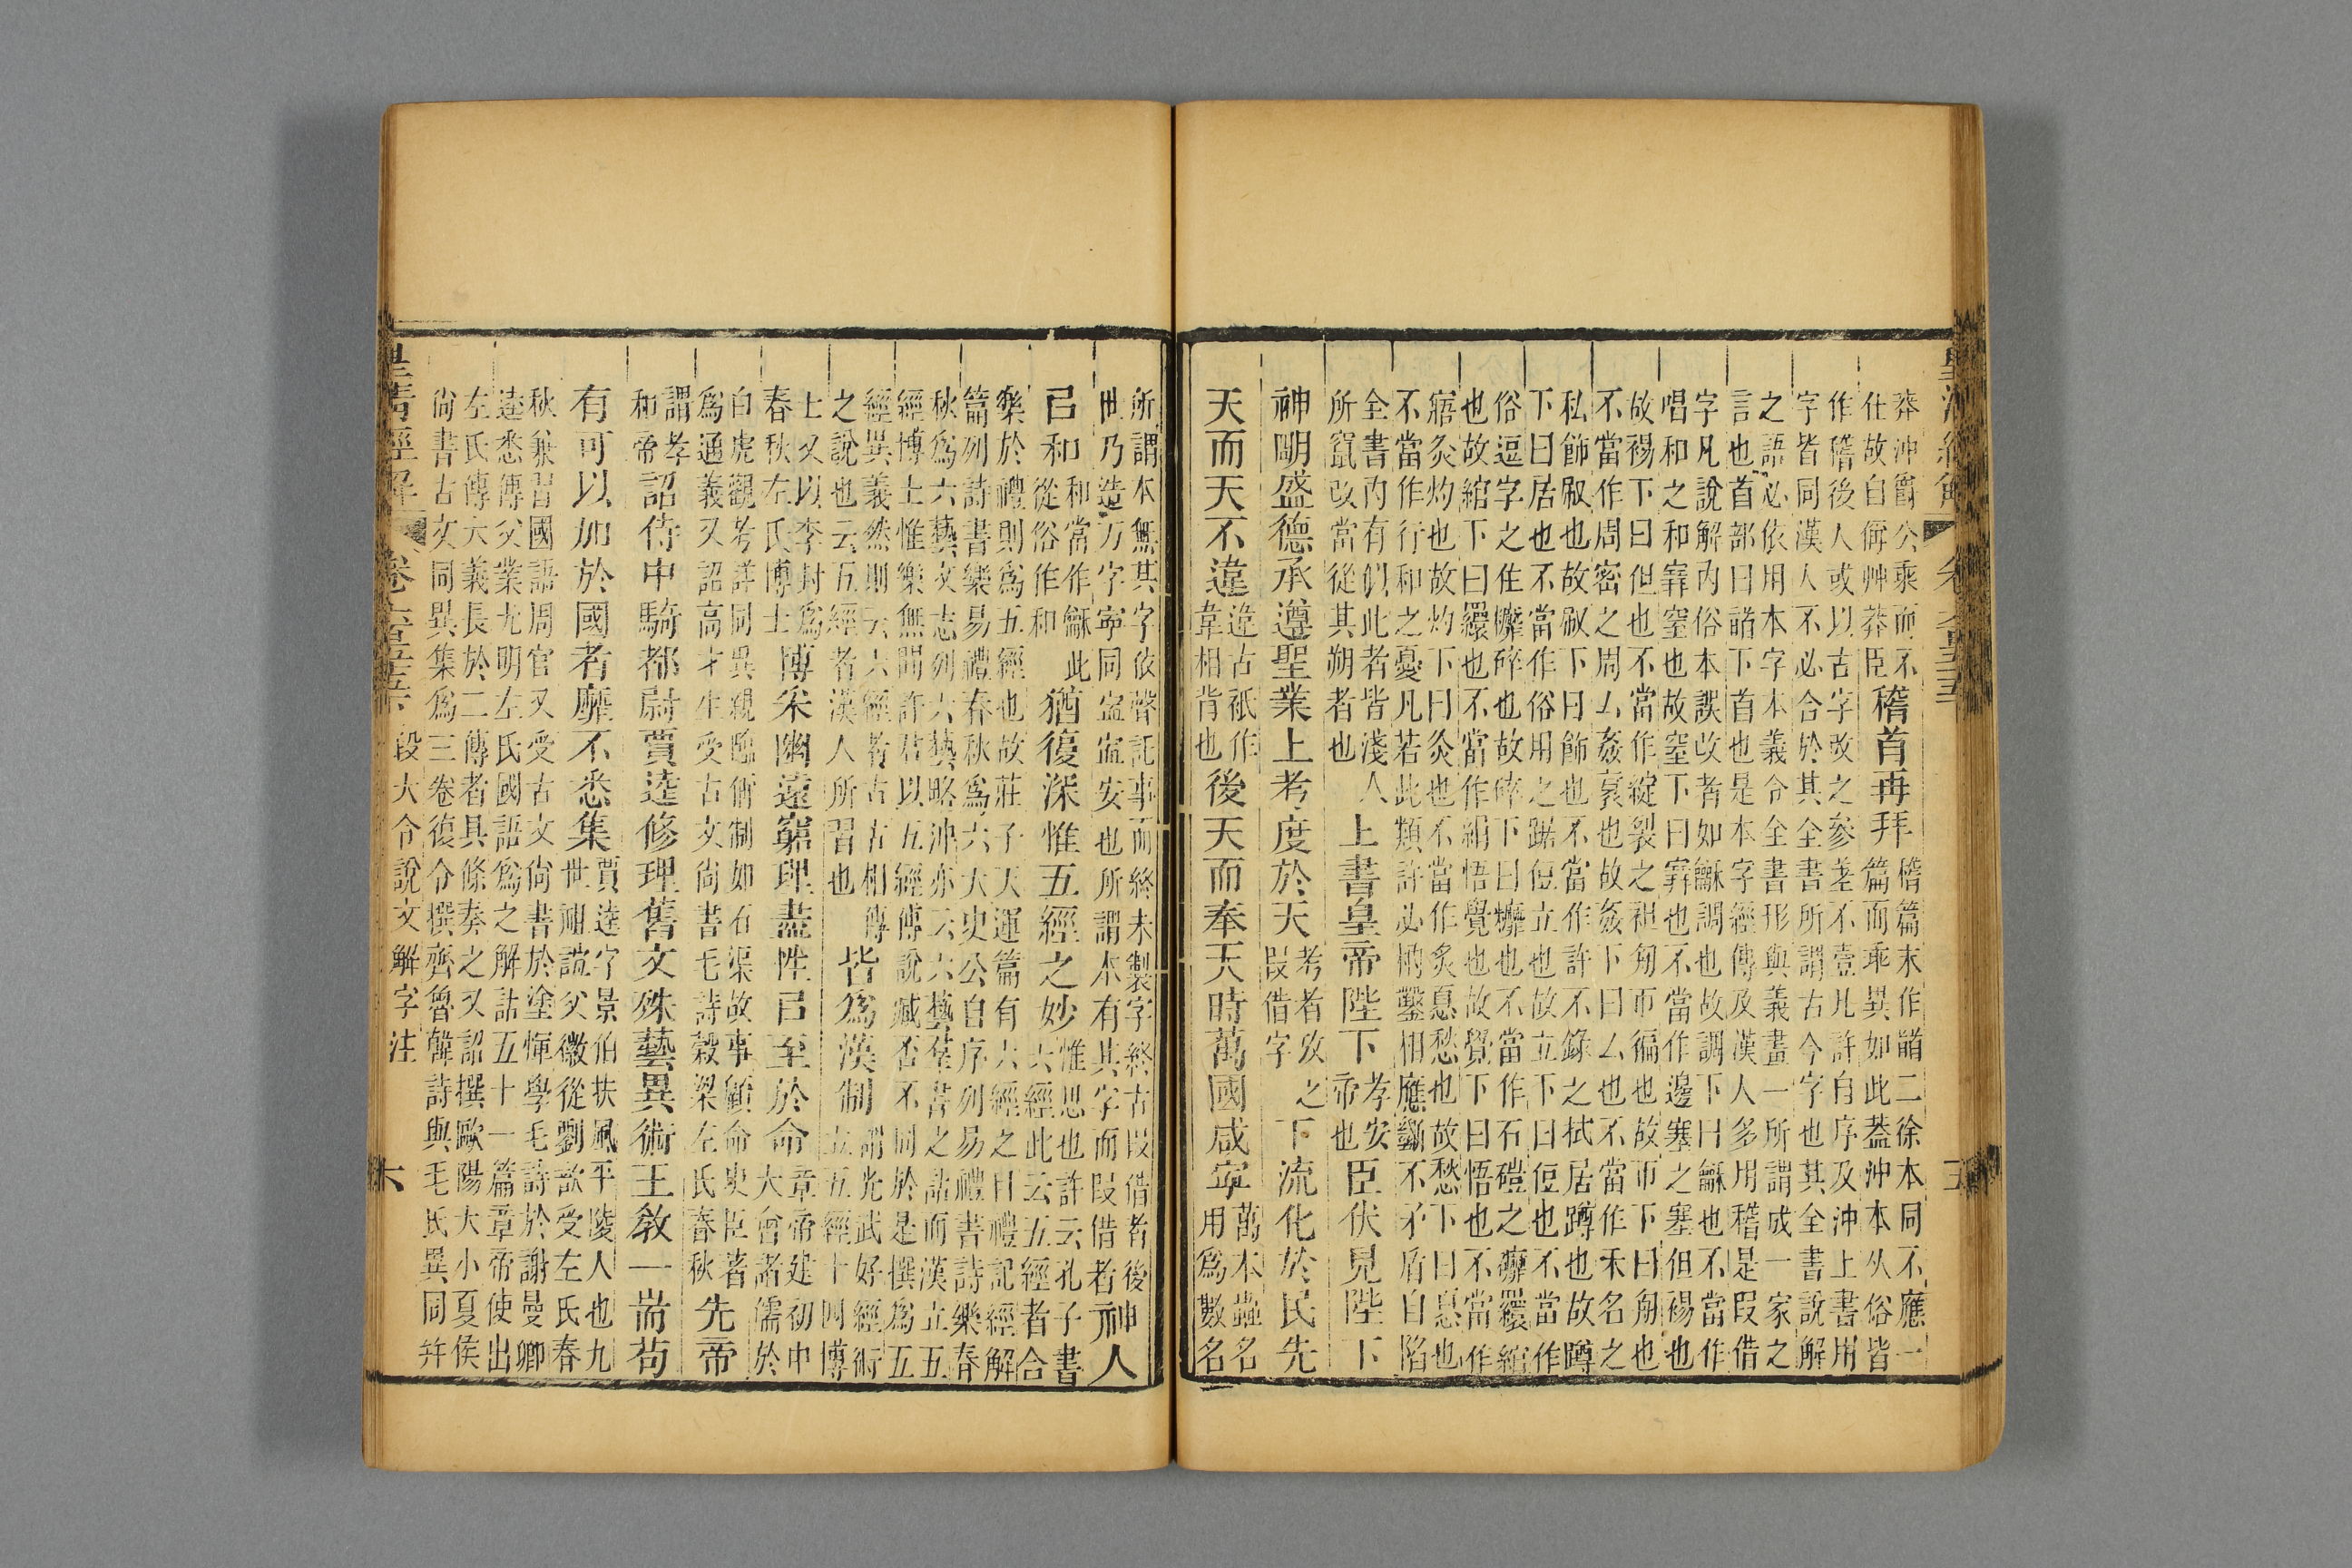 莽沖爵公乘而不
仕故自偁艸莽臣
稽首再拜
稽篇末作䭫二徐本同不應一
篇而乖異如此葢沖本从俗皆
作稽後人或以古字改之參差不壹凡許自序及沖上書用
字皆同漢人不必合於其全書所謂古今字也其全書說解
之語必依用本字本義令全書形與義畫一所謂成一家之
言也首部曰䭫下首也是本字經傳及漢人多用稽是叚借
字凡說解內俗本誤改者如龢調也故調下曰龢也不當作
唱和之和窲窒也故窒下曰窲也不當作邊塞之塞但裼也
故裼下曰但也不當作綻裂之袒匊帀徧也故帀下曰匊也
不當作周密之周厶姦衺也故姦下曰厶也不當作禾名之
私飾㕞也故㕞下曰飾也不當作許不錄之拭居蹲也故蹲
下曰居也不當作俗用之踞侸立也故立下曰侸也不當作
俗逗字之住䃺碎也故碎下曰䃺也不當作石磑之䃺纙綰
也故綰下曰纙也不當作絹悟覺也故覺下曰悟也不當作
寤灸灼也故灼下曰灸也不當作炙惪愁也故愁下曰惪也
不當作行和之憂凡若此類許必枘鑿相應斷不矛盾自陷
全書內有似此者皆淺人
所竄改當從其朔者也
上書皇帝陛下
孝安
帝也
臣伏見陛下
神明盛德承遵聖業上考度於天
考者攷之
叚借字
下流化於民先
天而天不違
違古衹作
韋相背也
後天而奉天時萬國咸寧
萬本蟲名
用爲數名
所謂本無其字依聲託事而終未製字終古叚借者後
世乃造万字寧同寍寍安也所謂本有其字而叚借者
神人
㠯和
和當作龢此
從俗作和
猶復深惟五經之妙
惟思也許云孔子書
六經此云五經者合
樂於禮則爲五經也故莊子天運篇有六經之曰禮記經解
篇列詩書樂易禮春秋爲六大史公自序列易禮書詩樂春
秋爲六藝文志列六藝略沖亦云六藝羣書之詁而漢立五
經博士惟樂無聞許君以五經傳說臧否不同於是撰爲五
經異義然則云六經者古古相傳
之說也云五經者漢人所習也
皆爲漢制
謂光武好經術
立五經十四博
士又以李封爲
春秋左氏博士
博采幽遠窮理盡性㠯至於命
章帝建初中
大會諸儒於
白虎觀考詳同異親臨偁制如石渠故事顧命史臣著
爲通義又詔高才生受古文尚書毛詩穀梁左氏春秋
先帝
謂孝
和帝
詔侍中騎都尉賈逵修理舊文殊藝異術王敎一耑苟
有可以加於國者靡不悉集
賈逵字景伯扶風平陵人也九
世祖誼父徽從劉歆受左氏春
秋兼習國語周官又受古文尚書於塗惲學毛詩於謝曼卿
逵悉傳父業尤明左氏國語爲之解詁五十一篇章帝使出
左氏傳大義長於二傳者具條奏之又詔撰歐陽大小夏侯
尚書古文同異集爲三卷復令撰齊魯韓詩與毛氏異同幷
皇淸經解
段大令說文解字注
六